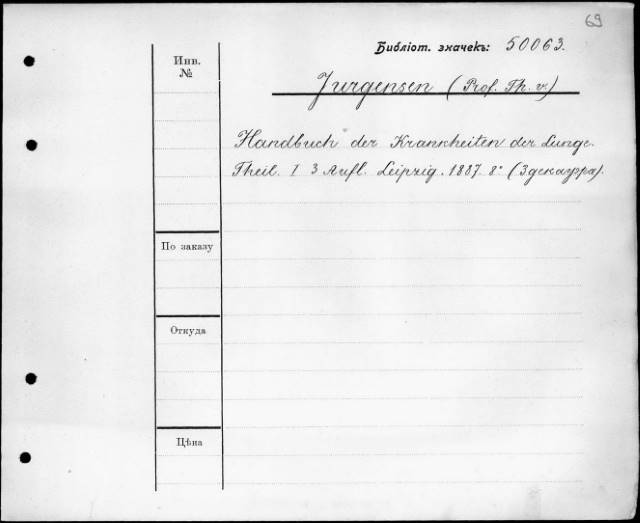 69
Библіот. значекъ: 50063.
Инв.
№
Jurgensen (Prof. Th. v.)
Handbuch der Krankheiten der Lunge.
Theil. I 3 Aufl. Leipzig. 1887. 8° (3
По заказу
Откуда
Цѣна